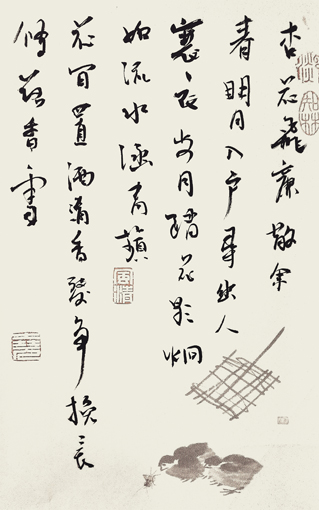 杏花飛簾散余
春明月入户尋幽人
褰衣步月踏花影炯
如流水涵青蘋
花間置酒清香發争挽長
條落香雪